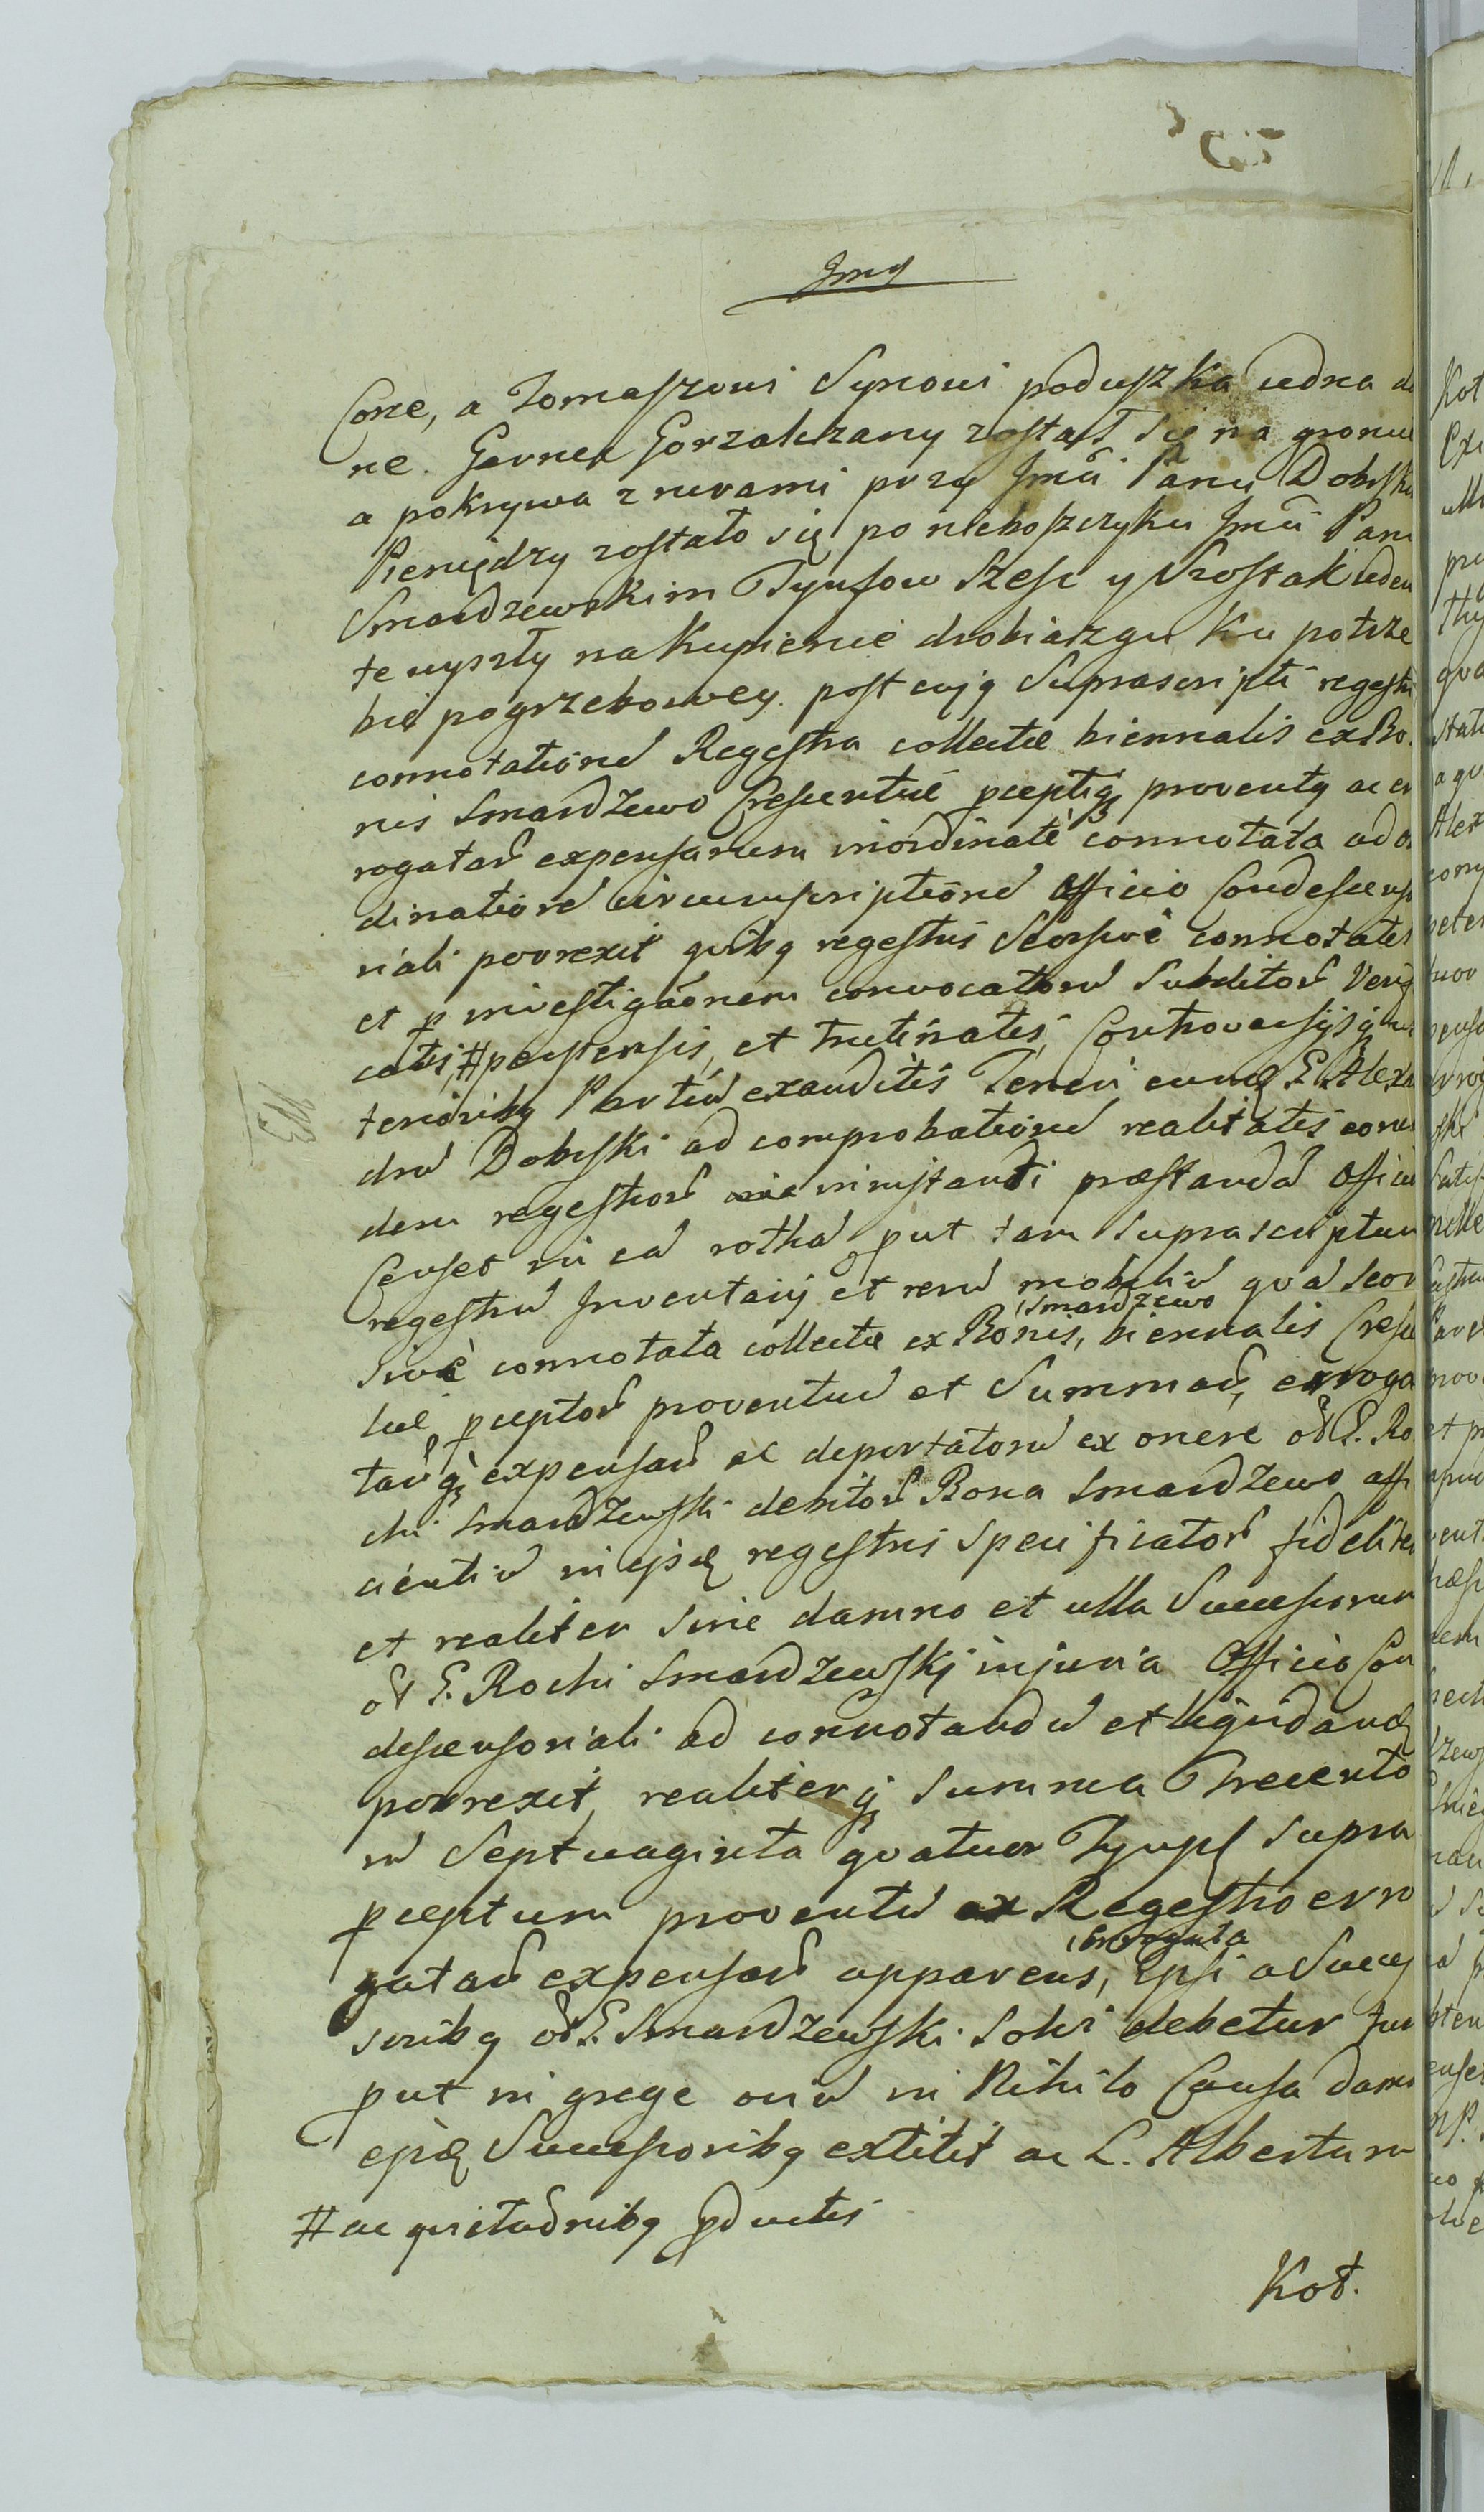 Jmę
Cone, a Tomaszowi Synowi poduszka iedna
ne. Garnek Gorzalczany został się na
a pokrywa z rurami przy Jmći Panu Dobski
Pieniędzy zostało się po nieboszczyku Jmći Panu
Smardzewskim Tynfow Szesc y Szostak ieden
te wyszły na kupienie drobiazgu ku potrze
bie pogrzebowey. post cujꝯ Suprascripti regestri
connotationē Regestra collectæ biennalis ex Bo
nis Smardzewo Crescentiæ pceptiqȝ proventꝯ ac er
rogatarū expensarum inordinate connotata ad or
dinationē circumscriptionē Officio Condescenso
riali porrexit quibꝯ regestris Seorsive connotatis
et p investigāonem convocatorū Subditorū Verifi
catis, # pensis, et trutinatis, Controversijsqȝ
terioribꝯ Partiū exauditis Teneri eundē G. Alexan
drū Dobski ad comprobationē realitatis eorun
dem regestrorū in instanti præstandā Officiū
Censet in eā rothā put tam Suprascriptum
regestrū Inventarij et rerū mobiliū qvā Seor
sive connotata collectæ ex Bonis, Smardzewo biennalis Cresce
tiæ, pceptorū proventuū et Summarū, erroga
tarūqȝ expensarū ac deportatorū ex onere olī G. Ro
chi Smardzewski debitorū Bona Smardzewo affi
cientiū in ipsis regestris Specificatorū fideliter
et realiter Sine damno et ulla Successorum
olī G. Rochi Smardzewskj injuria Officio Con
descensoriali ad connotandū et liqvidandū
porrexit, realiterqȝ Summa Trecento
rū Septuaginta qvatuor Tympf Supra
pceptum proventū ex Regestro erro
gatarū expensarū apparens, Erogata ipsi a Succes
soribꝯ olī G. Smardzewski Solvi debetur
put in grege oviū in Nihilo Causa damni
ejsdē Successoribꝯ extitit ac L. Albertum
# ac qvietaōnibꝯ pductis
Kot.